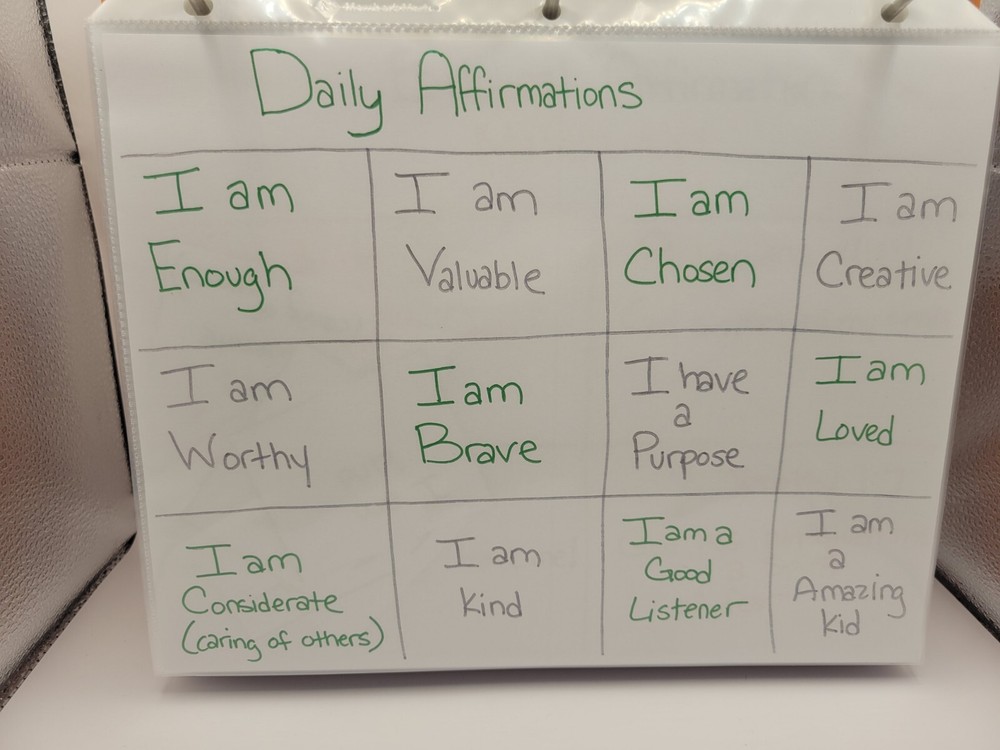 Daily Affirmations
I am
Enough
I am
Valuable
I am
Chosen
I am
Creative
I am
Worthy
I am
Brave
I have
a
Purpose
I am
Loved
I am
Considerate
(caring of others)
I am
Kind
I am a
Good
Listener
I am
a
Amazing
Kid